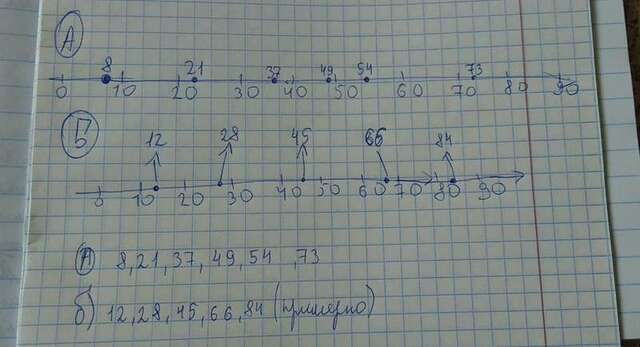 А
8 21 37 49 54 73
0 10 20 30 40 50 60 70 80 90
Б
12 28 45 66 84
0 10 20 30 40 50 60 70 80 90
А 8, 21, 37, 49, 54 , 73
б) 12, 28, 45, 66, 84 (примерно)